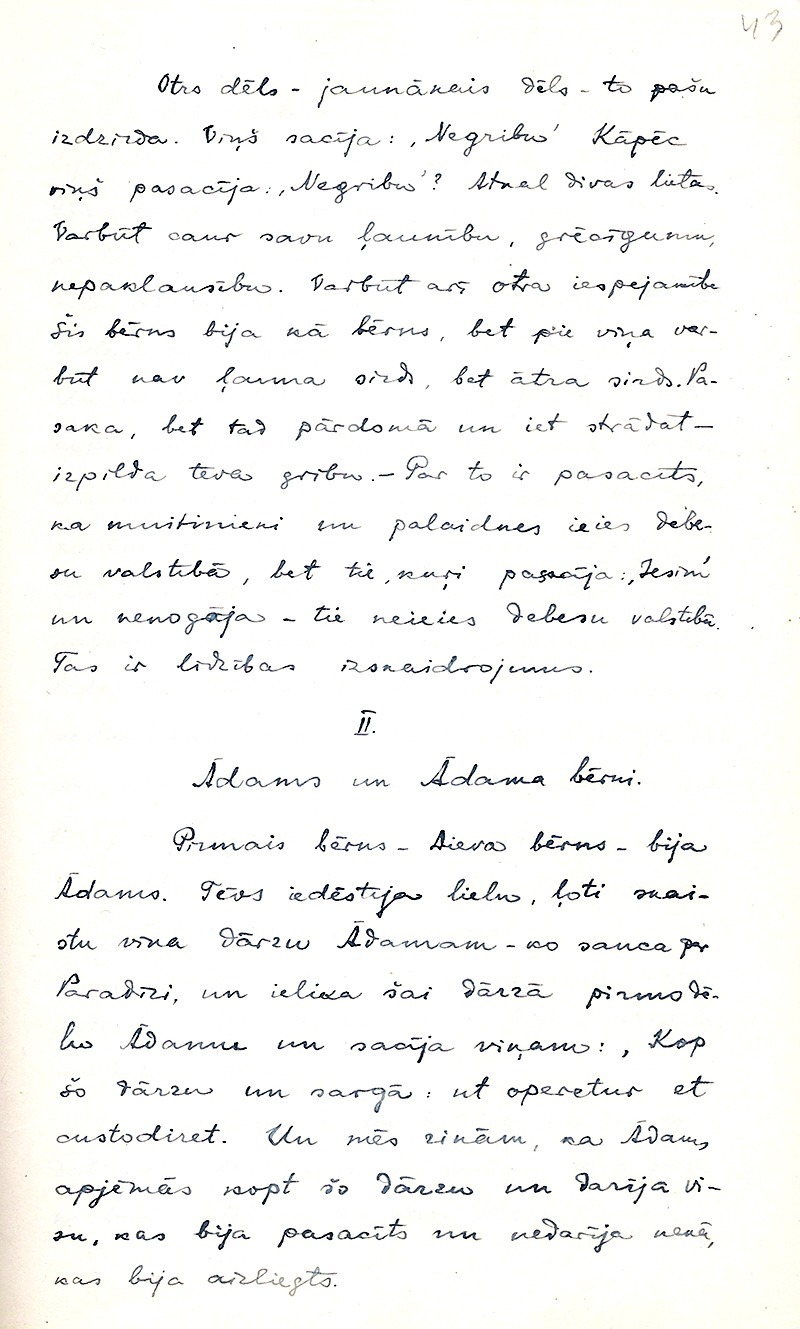 43
Otrs dēls - jaunākais dēls - to pašu
izdzirda. Viņš sacīja: ‚Negribu’ Kāpēc
viņš pasacīja: ‚Negribu’? Atkal divas lietas.
Varbūt caur savu ļaunību, grēcīgumu,
nepaklausību. Varbūt arī otra iespejamība
šis bērns bija kā bērns, bet pie viņa var-
būt nav ļauna sirds, bet ātra sirds. Pa-
saka, bet tad pārdomā un iet strādat —
izpilda teva gribu. - Par to ir pasacīts,
ka muitinieki un palaidnes ieies debe-
su valstībā, bet tie, kuŗi pasacīja: ‚Iesim’
un nenogāja - tie neieies debesu valstībā.
Tas ir līdzības izskaidrojums.
II.
Ādams un Ādama bērni.
Pirmais bērns - Dieva bērns - bija
Ādams. Tēvs iedēstīja lielu, ļoti skai-
stu vīna dārzu Ādamam - ko sauca par
Paradīzi, un ielika šai dārzā pirmdē-
lu Ādamu un sacīja viņam: ‚Kop
šo dārzu un sargā: ut operetur et
custodiret. Un mēs zinām, ka Ādams
apjēmās kopt šo dārzu un darīja vi-
su, kas bija pasacīts un nedarīja nekā,
kas bija aizliegts.